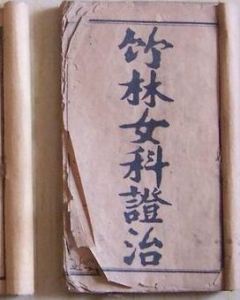 竹林女科證治